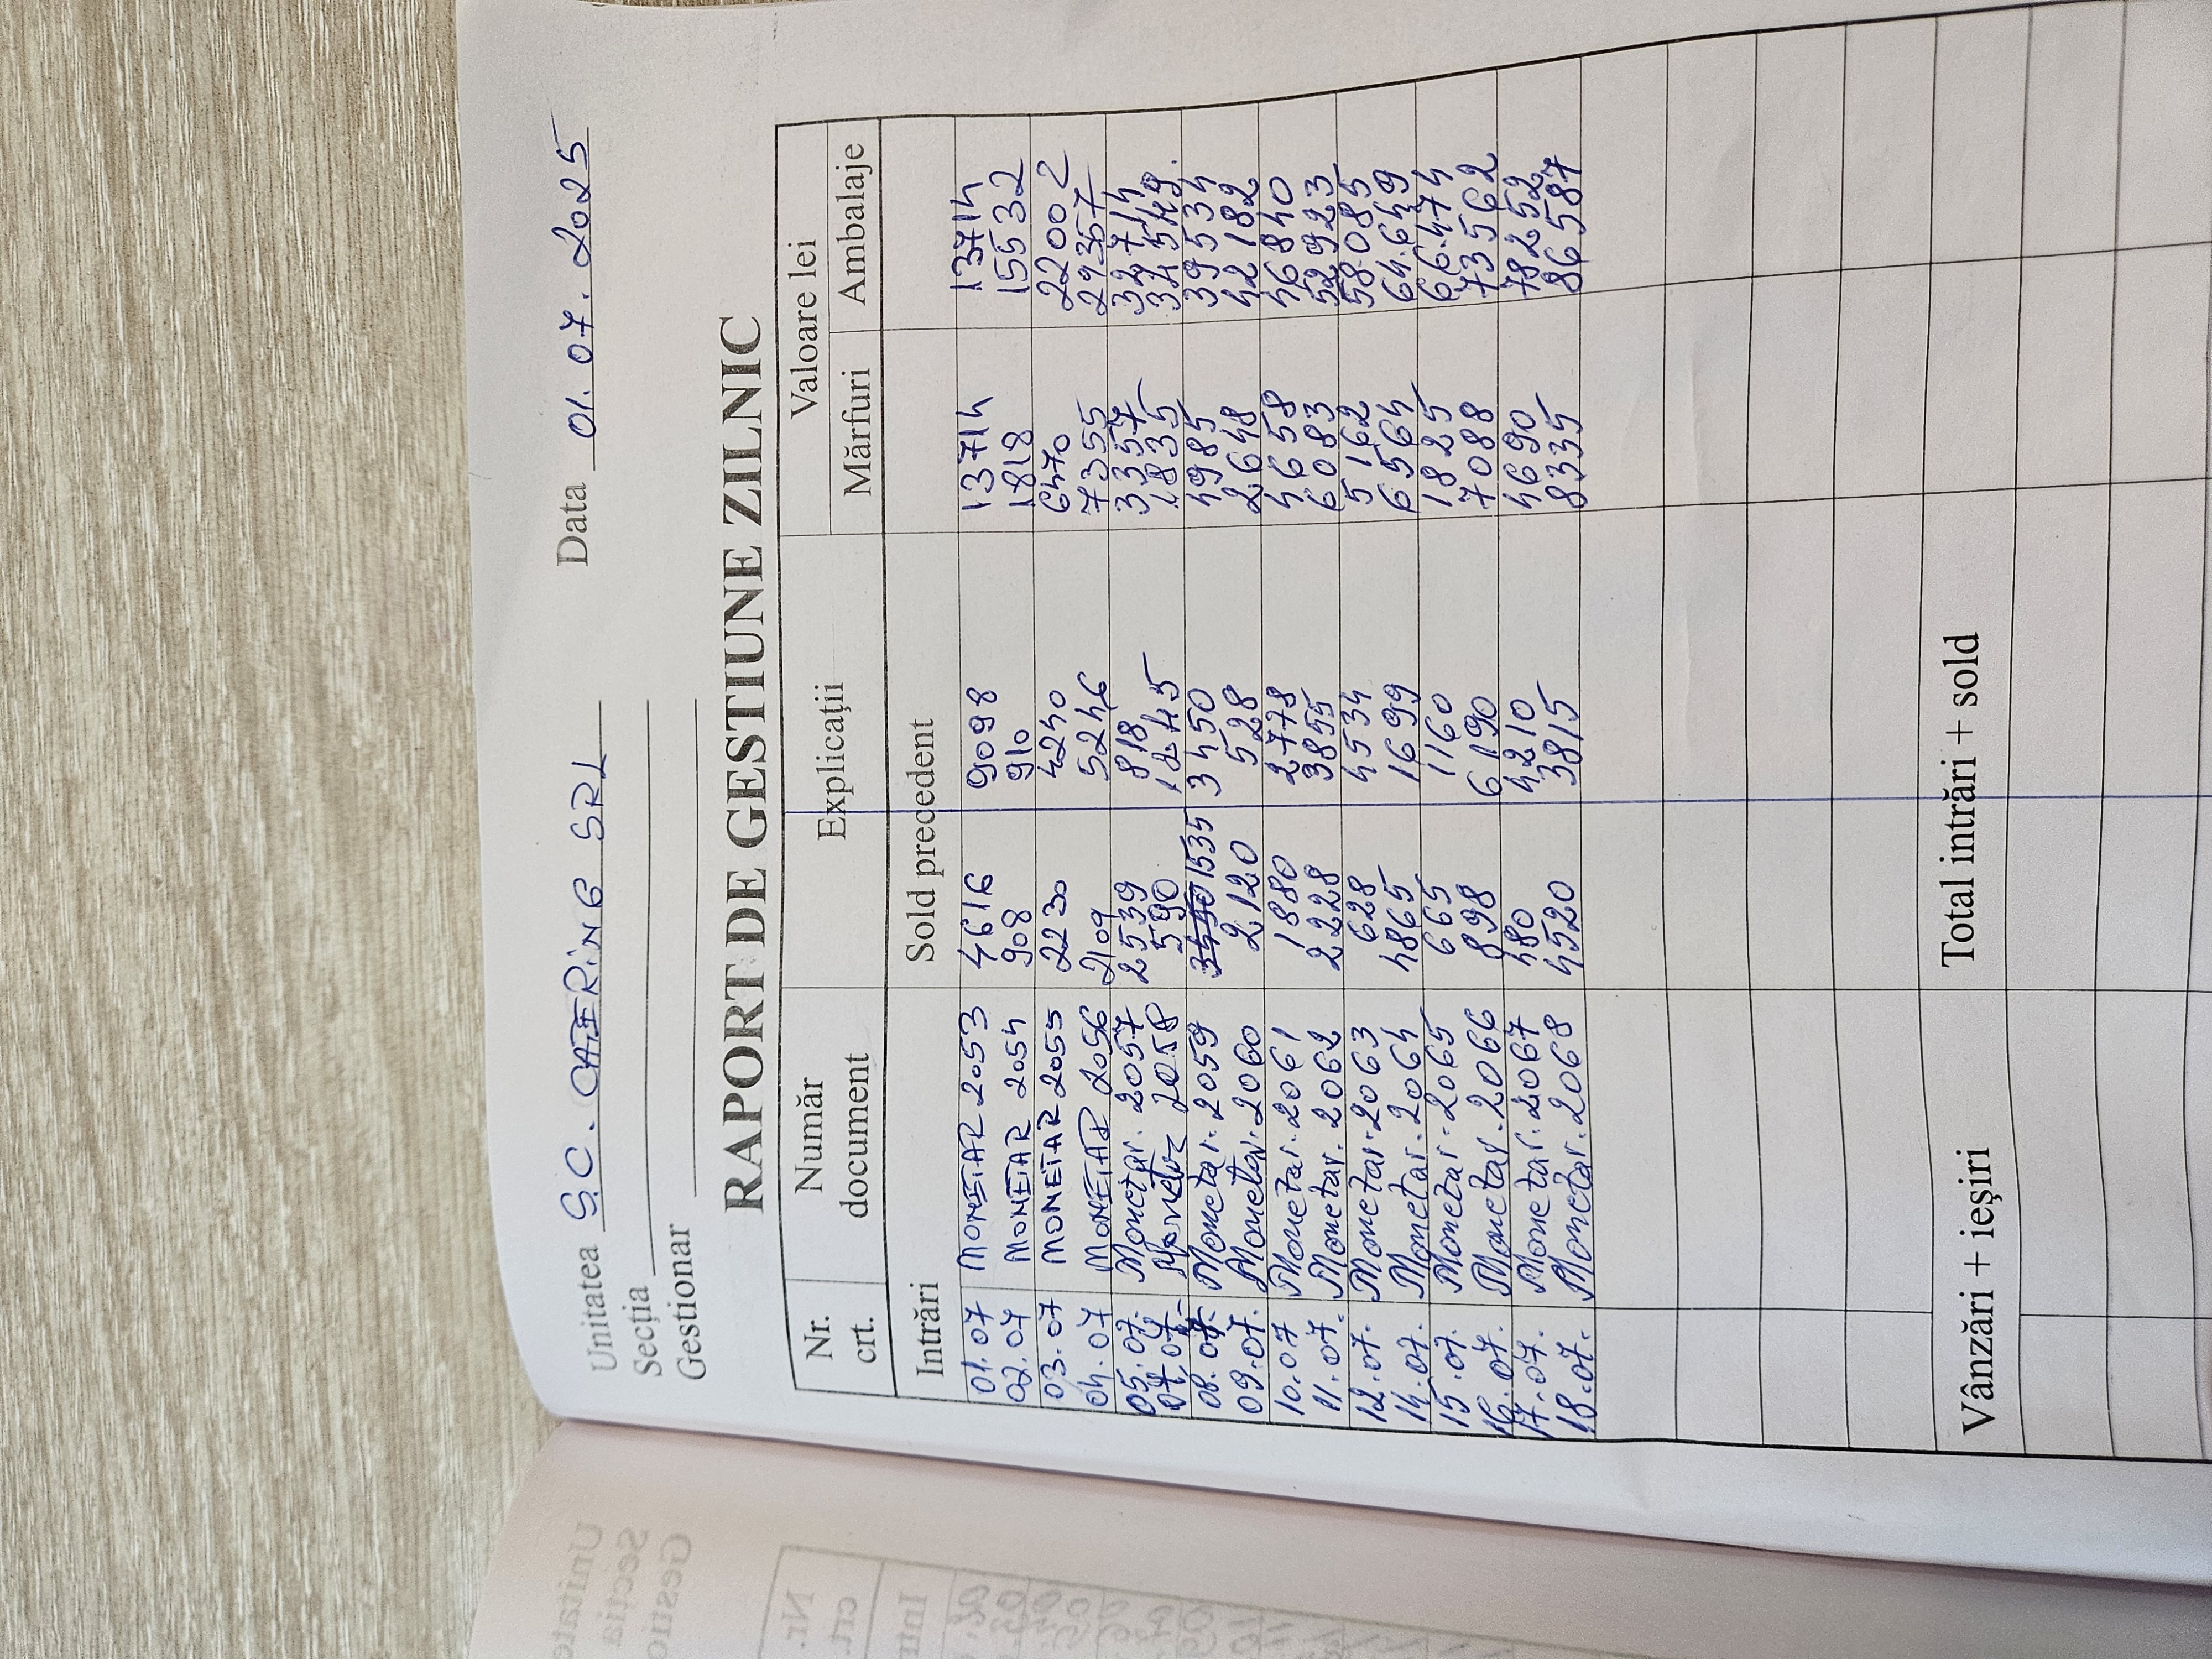 Unitatea S.C. CATERING SRL Data 01.07.2025
Secția
Gestionar
RAPORT DE GESTIUNE ZILNIC
Nr. crt. Număr document Explicații Valoare lei
Mărfuri Ambalaje
Intrări Sold precedent
01.07 MONETAR 2053 4616 9098 13714 13714
02.07 MONETAR 2054 908 910 1818 15532
03.07 MONETAR 2055 2230 4240 6470 22002
04.07 MONETAR 2056 2109 5246 7355 29357
05.07. Monetar. 2057 2539 818 3357 32714
07.07. Monetar 2058 590 1245 1835 34549.
08.07. Monetar. 2059 3450 1535 3450 4985 39534
09.07. Monetar. 2060 2120 528 2648 42182
10.07 Monetar. 2061 1880 2778 4658 46840
11.07. Monetar. 2062 2228 3855 6083 52923
12.07. Monetar. 2063 628 4534 5162 58085
14.07. Monetar. 2064 4865 1699 6564 64.649
15.07. Monetar. 2065 665 1160 1825 66.474
16.07. Monetar. 2066 898 6190 7088 73562
17.07. Monetar. 2067 480 4210 4690 78252
18.07. Monetar. 2068 4520 3815 8335 86587
Vânzări + ieșiri Total intrări + sold